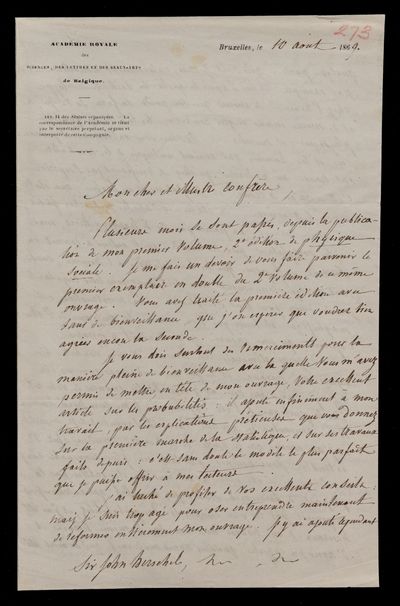 273
ACADÉMIE ROYALE
des
SCIENCES, DES LETTRES ET DES BEAUX-ARTS
de Belgique.
Bruxelles, le 10 août 1869.
Art. 14 des Statuts organiques. La
correspondance de l'Académie se tient
par le secrétaire perpétuel, organe et
interprète de cette compagnie.
Mon cher et illustre confrère,
Plusieurs mois se sont passés, depuis la publica-
tion de mon premier volume, 2e édition de physique
sociale. Je me fais un devoir de vous faire parvenir le
premier exemplaire en double du 2e volume du même
ouvrage. Vous avez traité la première édition avec
tant de bienveillance que j'ose espérer que voudrez bien
agréer encore la seconde.
Je vous dois surtout des remerciments pour la
manière pleine de bienveillance avec la quelle vous m'avez
permis de mettre en tête de mon ouvrage, votre excellent
article sur les probabilités: il ajoute infiniment à mon
travail, par les explications précieuses que vous donnez
sur la première marche de la statistique, et sur ses travaux
faits depuis: c'est sans doute le modèle le plus parfait
que je puisse offrir à mes lecteurs.
J'ai tâché de profiter de vos excellents conseils:
mais je suis trop âgé pour oser entreprendre maintenant
de reformer entièrement mon ouvrage. J'y ai ajouté cependant
Sir John Herschel,